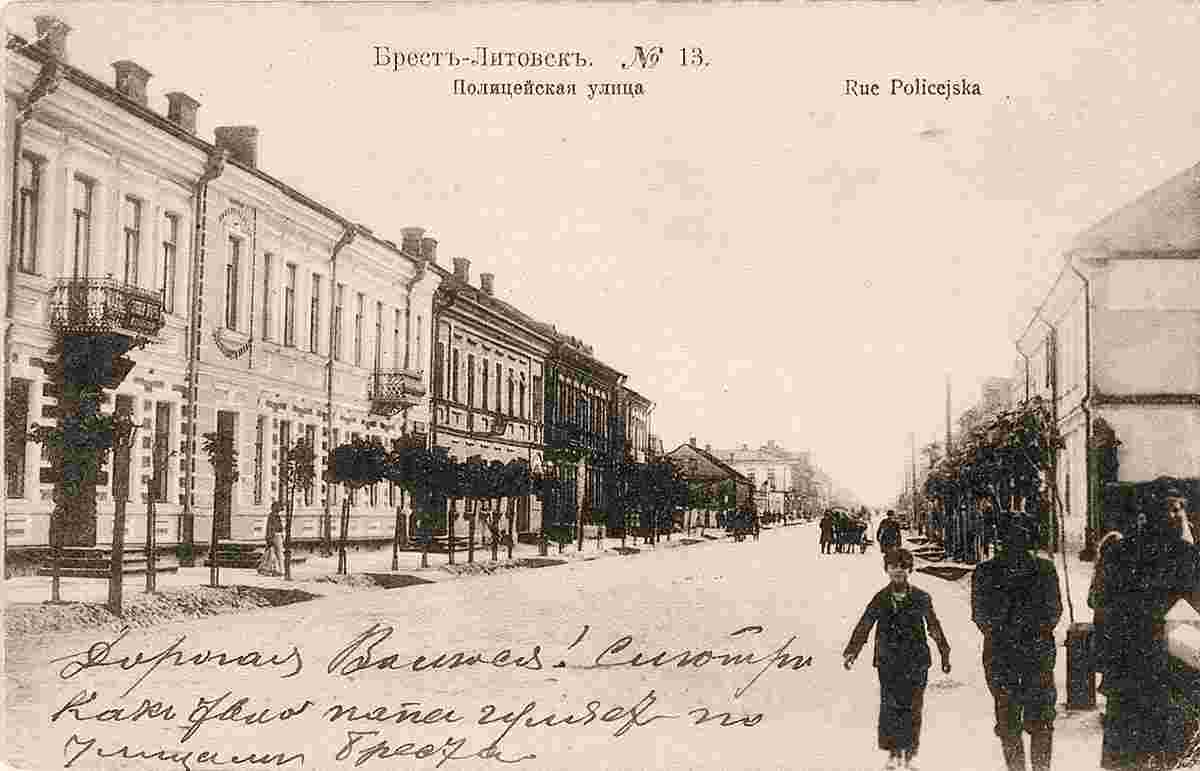 Брестъ-Литовскъ. № 13.
Полицейская улица
Rue Policejska
Дорогая Валюся! Смотри
Какъ твой папа гуляет по
улицамъ Бреста